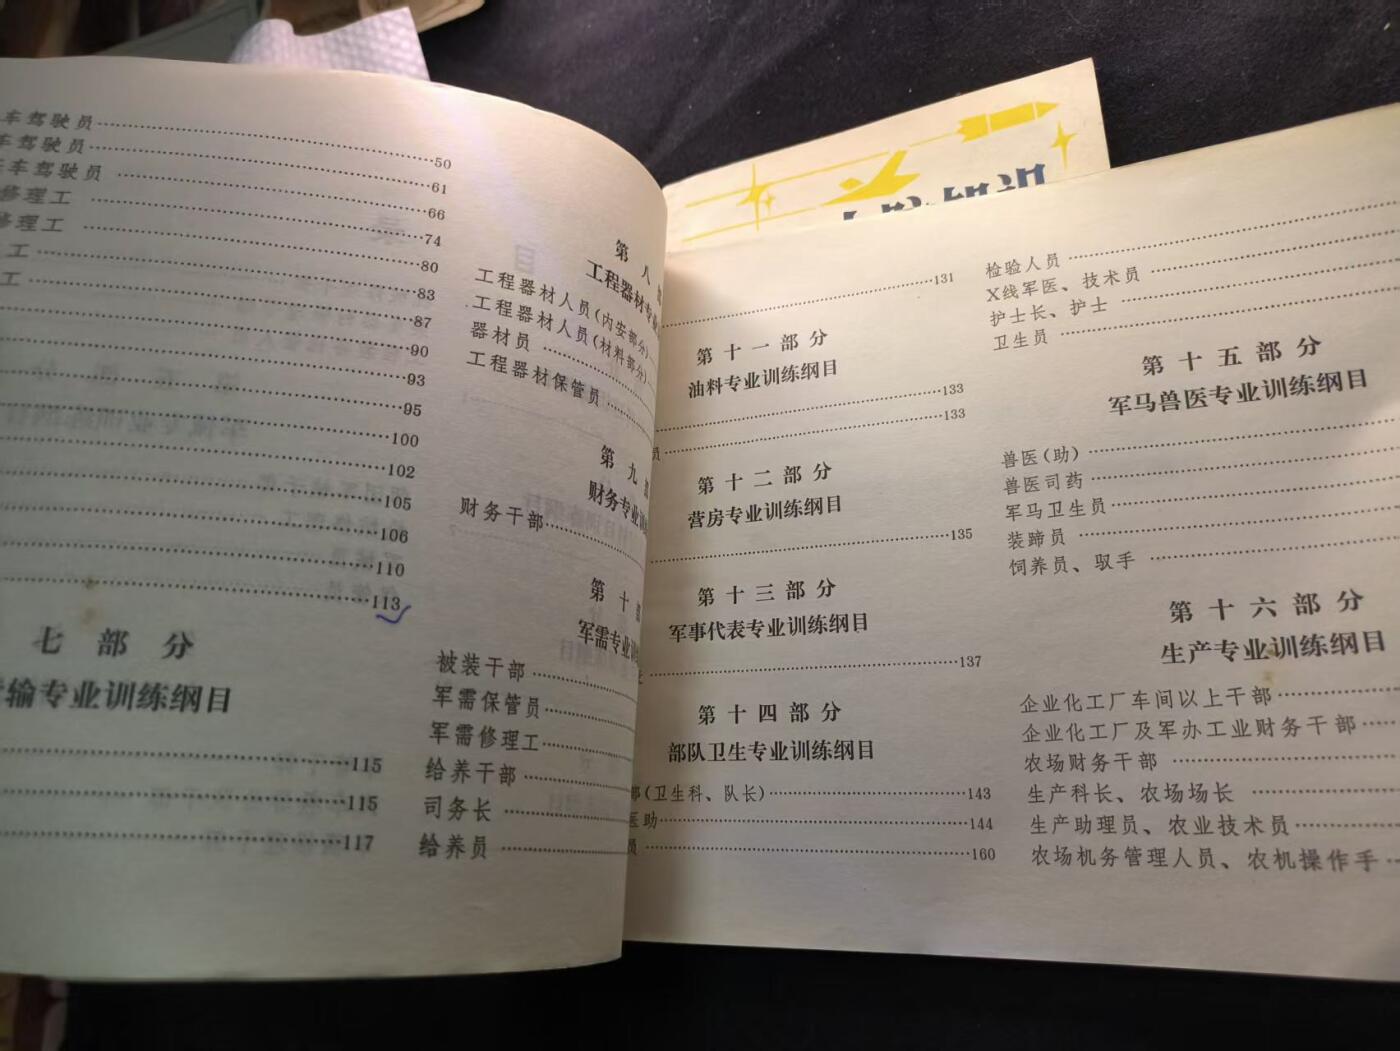 车驾驶员……50
车驾驶员……61
车驾驶员……66
修理工……74
修理工……80
工……83
工……87
……90
……93
……95
……100
……102
……105
……106
……110
……113
七部分
输专业训练纲目
……115
……115
……117
第八部
工程器材专业
工程器材人员(内安部分)……
工程器材人员(材料部分)……
器材员……
工程器材保管员……
第九部
财务专业训
财务干部……
第十部
军需专业训
被装干部……
军需保管员……
军需修理工……
给养干部……
司务长……
给养员……
……131
第十一部分
油料专业训练纲目
……133
员……133
第十二部分
营房专业训练纲目
……135
第十三部分
军事代表专业训练纲目
……137
第十四部分
部队卫生专业训练纲目
部(卫生科、队长)……143
医助……144
员……160
检验人员……
X线军医、技术员……
护士长、护士……
卫生员……
第十五部分
军马兽医专业训练纲目
兽医(助)……
兽医司药……
军马卫生员……
装蹄员……
饲养员、驭手……
第十六部分
生产专业训练纲目
企业化工厂车间以上干部……
企业化工厂及军办工业财务干部……
农场财务干部……
生产科长、农场场长……
生产助理员、农业技术员……
农场机务管理人员、农机操作手……